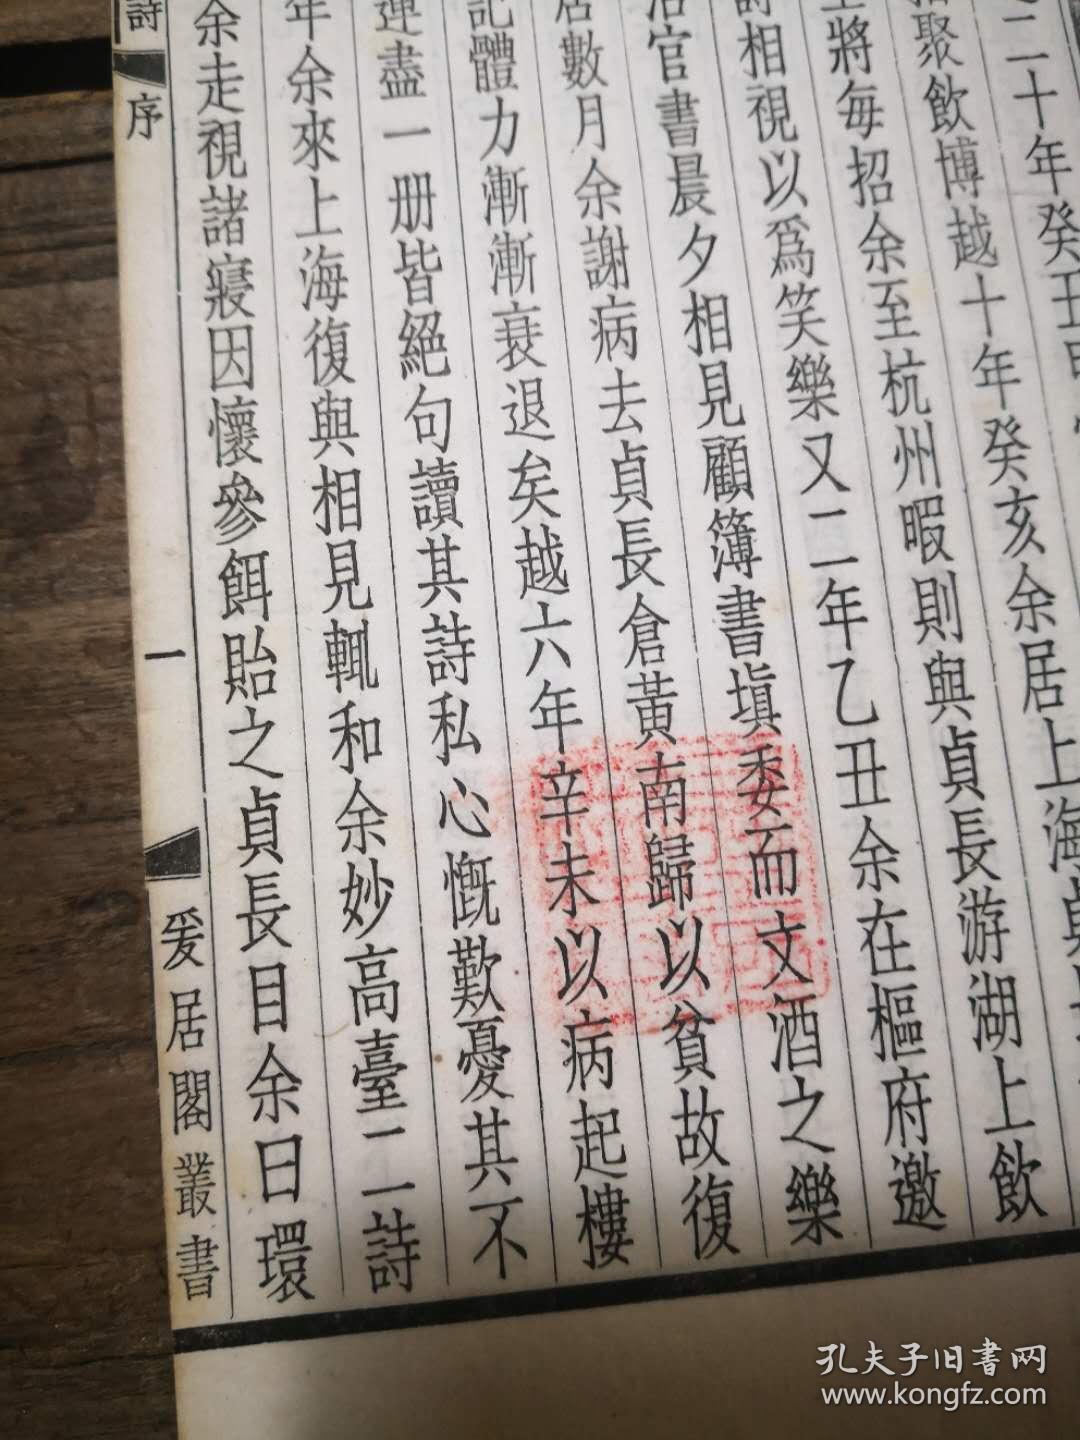 二十年癸丑
聚飲博越十年癸亥余居上海貞
將每招余至杭州暇則與貞長游湖上飲
詩相視以爲笑樂又二年乙丑余在樞府邀
治官書晨夕相見顧簿書塡委而文酒之樂
居數月余謝病去貞長倉黃南歸以貧故復
記體力漸漸衰退矣越六年辛未以病起樓
盡一册皆絕句讀其詩私心慨歎憂其不
年余來上海復與相見輒和余妙高臺二詩
余走視諸寢因懷參餌貽之貞長目余曰環
詩 序 一 爰居閣叢書
孔夫子旧書网
www.kongfz.com